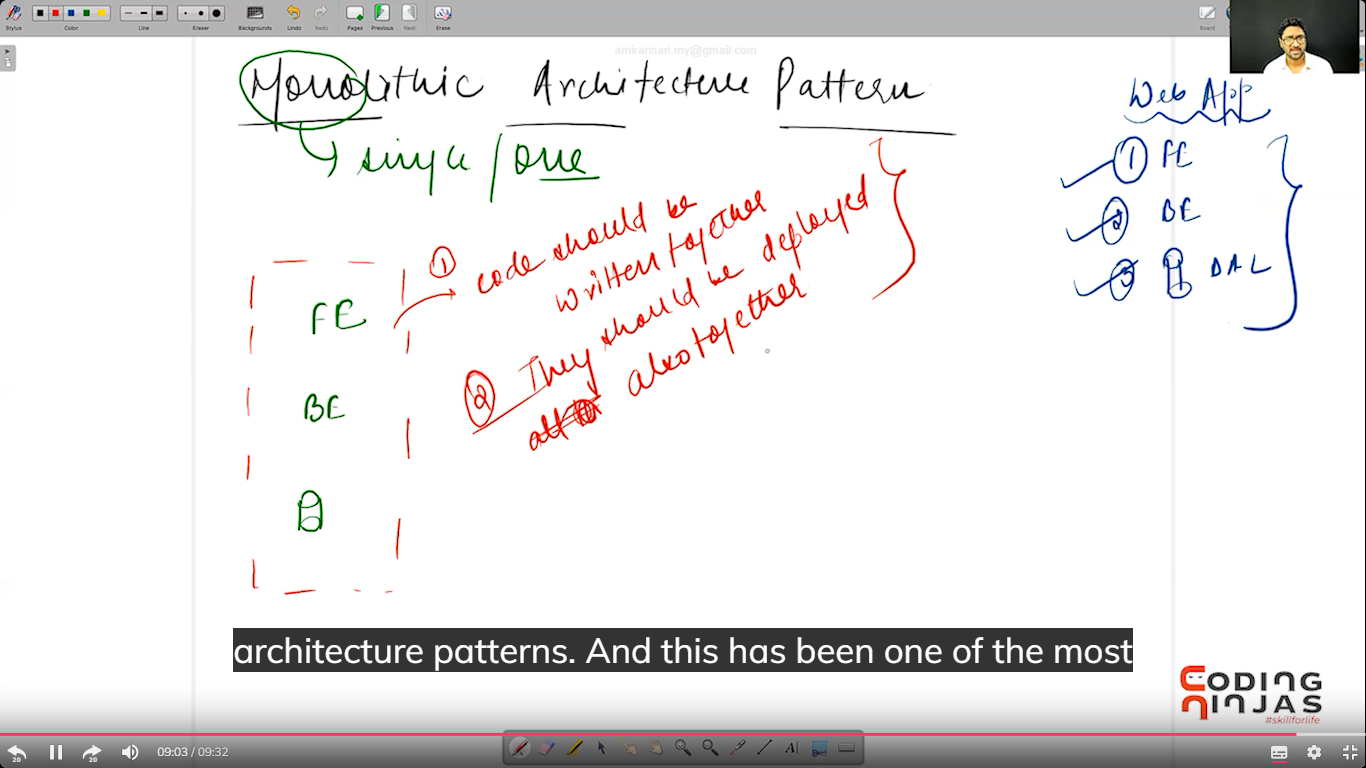 Stylus
Color
Line
Eraser
Backgrounds
Undo
Redo
Pages
Previous
Next
Erase
Board
amiransari.my@gmail.com
Monolithic Architecture Pattern
single / one
Web App
① FE
② BE
③ DAL
① code should be
written together
② They should be deployed
also together
FE
BE
architecture patterns. And this has been one of the most
CODING
NINJAS
#skillforlife
20
20
09:03 / 09:32